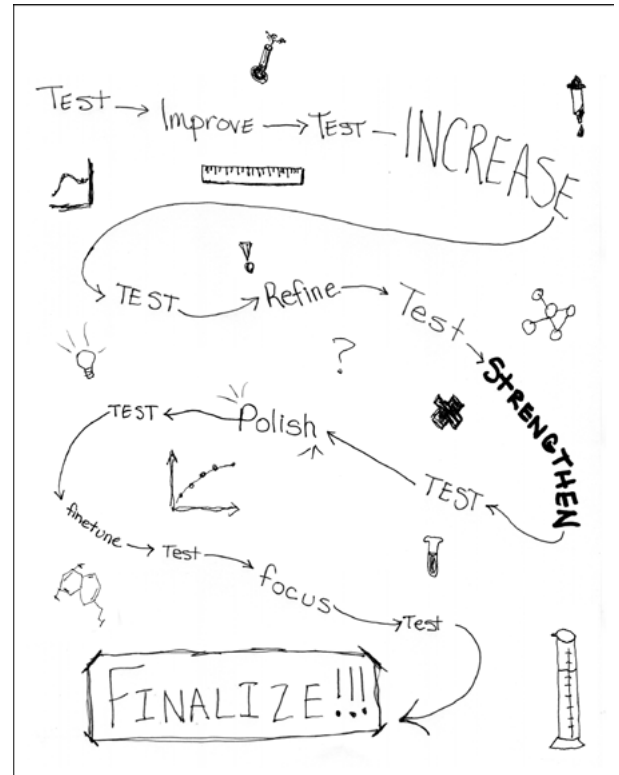 TEST Improve TEST INCREASE
!
TEST Refine Test STRENGTHEN
?
TEST Polish TEST
finetune Test focus Test
FINALIZE!!!